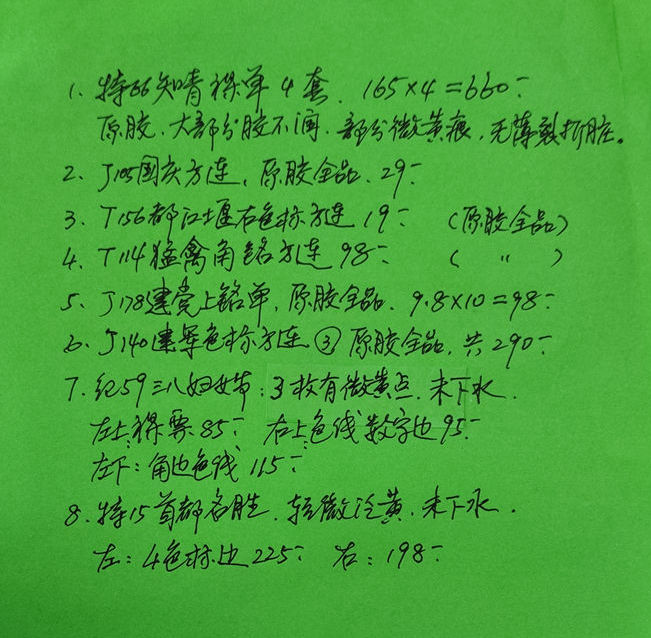 1、特66知青裸单4套、165×4=660-
原胶、大部分胶不润、部分微黄痕、无薄裂折脏。
2、J105国庆方连、原胶全品、29-
3、T156都江土堰右色标方连19- (原胶全品)
4、T114猛禽角铭方连98- ( " )
5、J178建党上铭单、原胶全品、9.8×10=98-
6、J140建军色标方连③原胶全品、共290-
7、纪59三八妇女节:3枚有微黄点、未下水.
左上:裸票85- 右上:色线数字边95-
左下:角边色线115-
8、特15首都名胜、轻微泛黄、未下水.
左:4色标边225- 右:198-